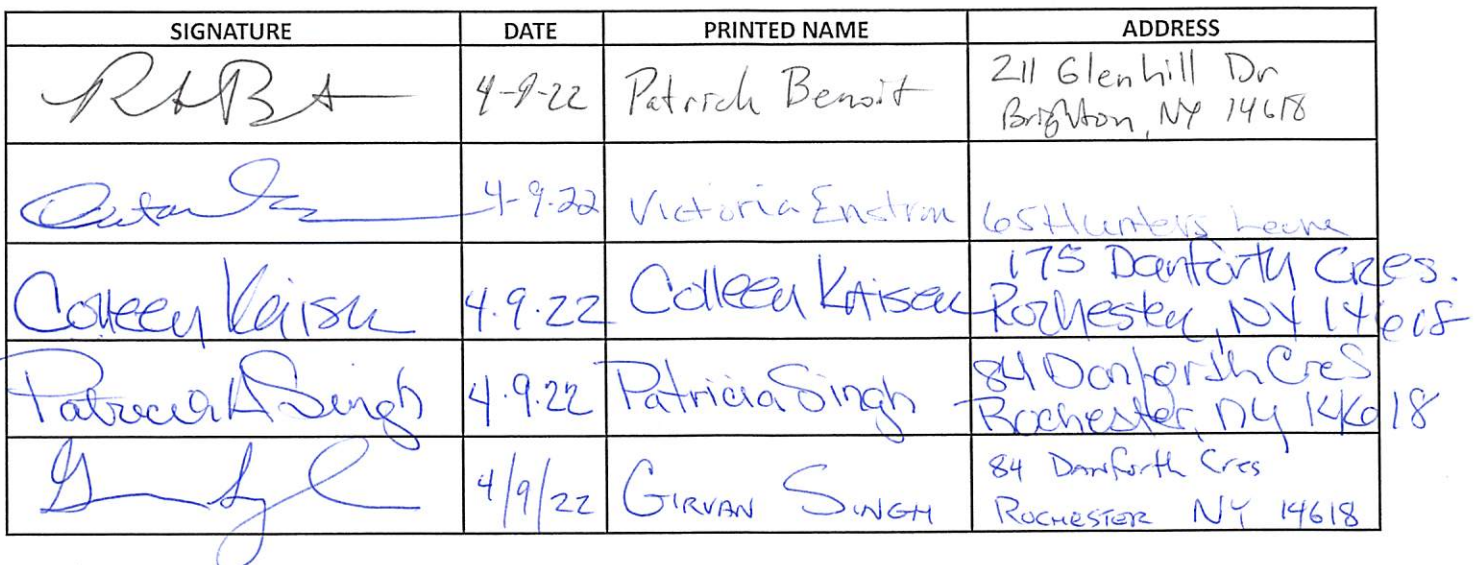 SIGNATURE DATE PRINTED NAME ADDRESS
4-9-22 Patrick Benoit 211 Glenhill Dr
Brighton, NY 14618
4-9-22 Victoria Enstrom 65 Hunters Leane
Colleen Kaiser 4.9.22 Colleen Kaiser 175 Danforth Cres.
Rochester, NY 14618
Patricia A Singh 4.9.22 Patricia Singh 84 Danforth Cres
Rochester, NY 14618
4/9/22 GIRVAN SINGH 84 Danforth Cres
ROCHESTER NY 14618